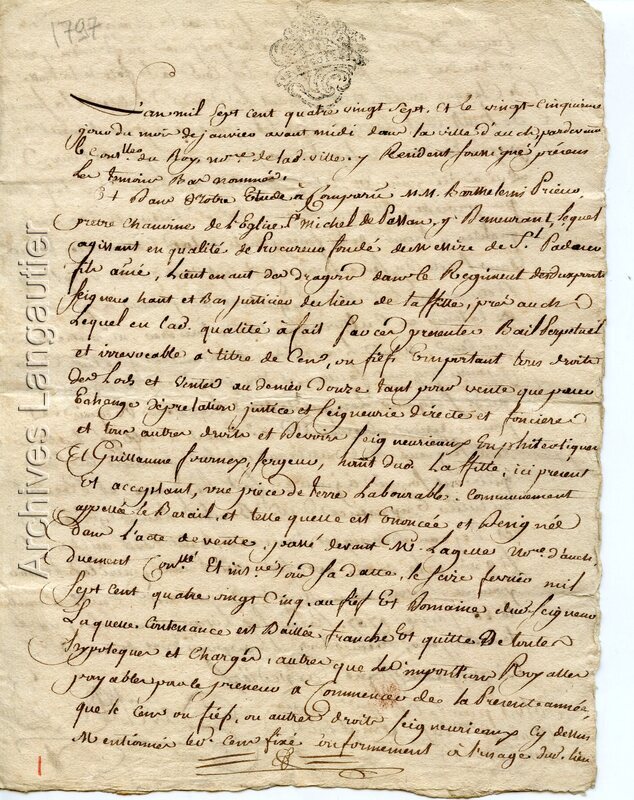 1797
L'an mil Sept cent quatre vingt sept. et le vingt cinquieme
jour du mois de janvier avant midi dans la ville d'auch pardevant
le Con.lleo du Roy, no.re de lad. ville. y Resident soussigné présens
Les temoins Bas nommés.
Dans Notre Etude à Comparu M.M. Barthelemi Prieur,
pretre chanoine de l'Eglise S.t Michel de Passau, y Demeurant, lequel
agissant en qualité de Procureur fondé de Messire de S.t
fils ainé, Lieutenant des dragons dans le Regiment des deux ponts
Seigneur haut et Bas justicier du lieu de Laffitte, près auch
Lequel en lad. qualité à fait Bail Perpetuel
et irrevocable à titre de Cens, ou fiefs Emportant tous droits
des Lods et Ventes au denier Douze tant pour vente que pour
Echange prelation justice et Seigneurie directe et fonciere
et tous autres droits et Devoirs Seigneurieaux Emphiteotiques
Et Guillaume hab.nt dud. Laffitte, ici present
Et acceptant, une piece de terre Labourable. Communement
appellée le Barail, et telle quelle est Enoncée et Designée
dans l'acte de vente, passé devant M.e No.re d'auch
duement Con.llé Et ins.nué sous sa datte, le seize fevrier mil
Sept cent quatre vingt Cinq. au fief Et Domaine dud. Seigneur
Laquelle Contenance est Baillée franche Et quitte De toutes
hypoteques et Charges, autres que Les impositions Royalles
payables par le preneur à Commencer de la Presente année
que le Cens ou fiefs, ou autres droits Seigneurieaux Cy dessus
Mentionnés Led. Cens fixé Conformement à l'usage dud. lieu
Archives Langautier